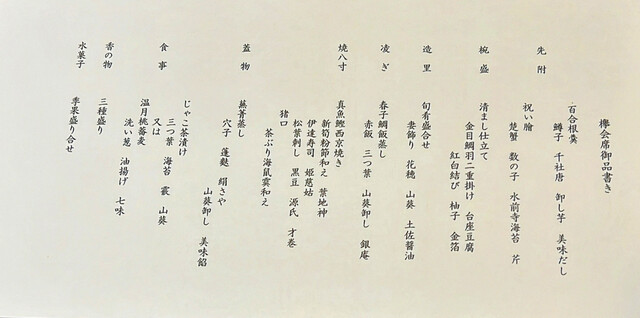 欅会席御品書き
先附
百合根羹
鱒子 千社唐 卸し芋 美味だし
祝い膾
楚蟹 数の子 水前寺海苔 芹
椀盛
清まし仕立て
金目鯛羽二重掛け 台座豆腐
紅白結び 柚子 金箔
造里
旬肴盛合せ
妻飾り 花穂 山葵 土佐醤油
凌ぎ
春子鯛飯蒸し
赤飯 三つ葉 山葵卸し 銀庵
焼八寸
真魚鰹西京焼き
新筍粉節和え 葉地神
伊達寿司 姫慈姑
松葉刺し 黒豆 源氏 才巻
猪口
茶ぶり海鼠霙和え
蓋物
蕪菁蒸し
穴子 蓬麩 絹さや
山葵卸し 美味餡
食事
じゃこ茶漬け
三つ葉 海苔 霰 山葵
又は
温月桃蕎麦
洗い葱 油揚げ 七味
香の物
三種盛り
水菓子
季果盛り合せ